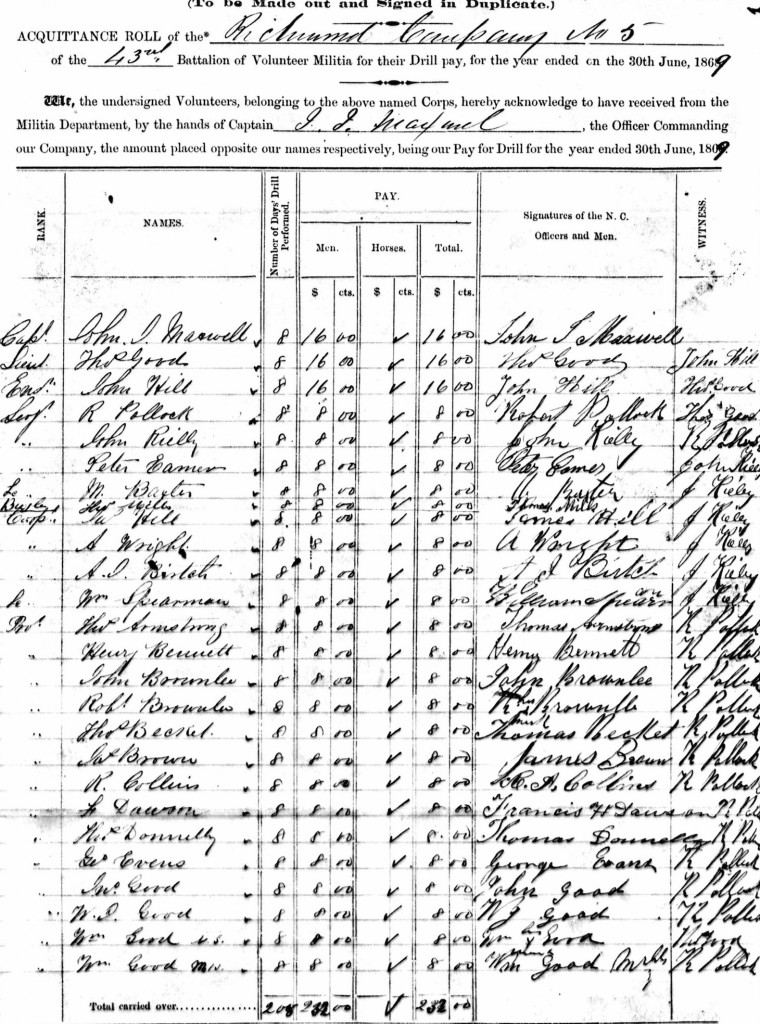 (To be Made out and Signed in Duplicate.)
ACQUITTANCE ROLL of the* Richmond Company No 5
of the 43rd Battalion of Volunteer Militia for their Drill pay, for the year ended on the 30th June, 1869
We, the undersigned Volunteers, belonging to the above named Corps, hereby acknowledge to have received from the
Militia Department, by the hands of Captain J. J. Maxwel, the Officer Commanding
our Company, the amount placed opposite our names respectively, being our Pay for Drill for the year ended 30th June, 1869.
RANK. NAMES. Number of Days' Drill Performed. PAY. Signatures of the N. C. Officers and Men. WITNESS.
Men. Horses. Total.
$ cts. $ cts. $ cts.
Capt. John J. Maxwell 8 16 00 ✓ 16 00 John J Maxwell
Lieut. Thos Good 8 16 00 ✓ 16 00 Thos Good John Hill
Ens. John Hill 8 16 00 ✓ 16 00 John Hill Thos Good
Serj. R Pollock 8 8 00 ✓ 8 00 Robert Pollock Thos Good
" John Rielly 8 8 00 ✓ 8 00 John Rieley R Pollock
" Peter Eamer 8 8 00 ✓ 8 00 Peter Eamer John Rieley
M. Baxter 8 8 00 ✓ 8 00 M Baxter J Rieley
8 8 00 ✓ 8 00 James Mills
Corp. Ja Hill 8 8 00 ✓ 8 00 James Hill J Rieley
" A Wright 8 8 00 ✓ 8 00 A Wright J Rieley
" A. J. Birtch 8 8 00 ✓ 8 00 A J Birtch J Rieley
Wm Spearman 8 8 00 ✓ 8 00 William Spearman J Rieley
Prvt. Thos Armstrong 8 8 00 ✓ 8 00 Thomas Armstrong R Pollock
" Henry Bennett 8 8 00 ✓ 8 00 Henry Bennett R Pollock
" John Brownlee 8 8 00 ✓ 8 00 John Brownlee R Pollock
" Robt Brownlee 8 8 00 ✓ 8 00 Brownlee R Pollock
" Thos Becket 8 8 00 ✓ 8 00 Thomas Becket R Pollock
" Jas Brown 8 8 00 ✓ 8 00 James Brown R Pollock
" R. Collins 8 8 00 ✓ 8 00 R. A. Collins R Pollock
" F Dawson 8 8 00 ✓ 8 00 Francis H Dawson R Pollock
" Thos Donnelly 8 8 00 ✓ 8 00 Thomas Donnelly R Pollock
" Geo Evens 8 8 00 ✓ 8 00 George Evans R Pollock
" Jno Good 8 8 00 ✓ 8 00 John Good R Pollock
" W. J. Good 8 8 00 ✓ 8 00 W J Good R Pollock
" Wm Good 8 8 00 ✓ 8 00 Wm Good Thos Good
" Wm Good 8 8 00 ✓ 8 00 Wm Good R Pollock
Total carried over.................. 208 232 00 ✓ 232 00